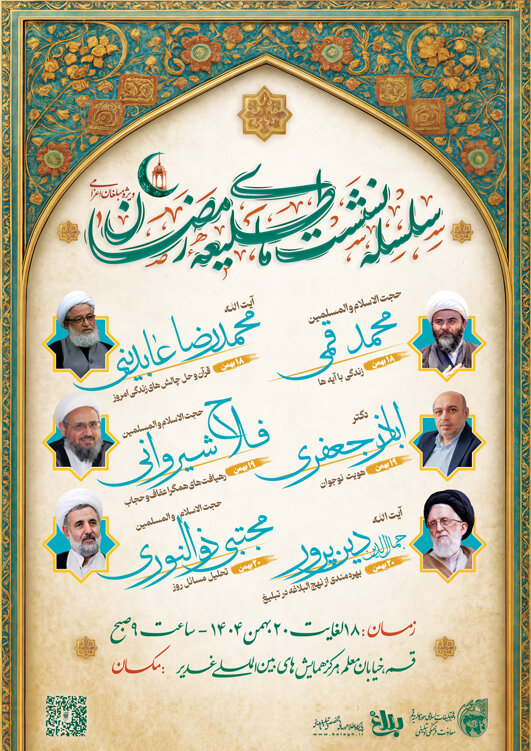 ویژه مبلغان اعزامی
سلسله نشست های طلیعه رمضان
حجت الاسلام والمسلمین
محمد قمی
۱۸ بهمن
زندگی با آیه ها
آیت الله
محمدرضا عابدینی
۱۸ بهمن
قرآن و حل چالش های زندگی امروز
دکتر
اباذر جعفری
۱۹ بهمن
هویت نوجوان
حجت الاسلام والمسلمین
فلاح شیروانی
۱۹ بهمن
رهیافت های همگرا عفاف و حجاب
آیت الله
جمال الدین دین پرور
۲۰ بهمن
بهره مندی از نهج البلاغه در تبلیغ
حجت الاسلام و المسلمین
مجتبی ذوالنوری
۲۰ بهمن
تحلیل مسائل روز
زمان: ۱۸ لغایت ۲۰ بهمن ۱۴۰۴ - ساعت ۹ صبح
مکان: قم، خیابان معلم، مرکز همایش های بین المللی غدیر
بلاغ
www.balagh.ir